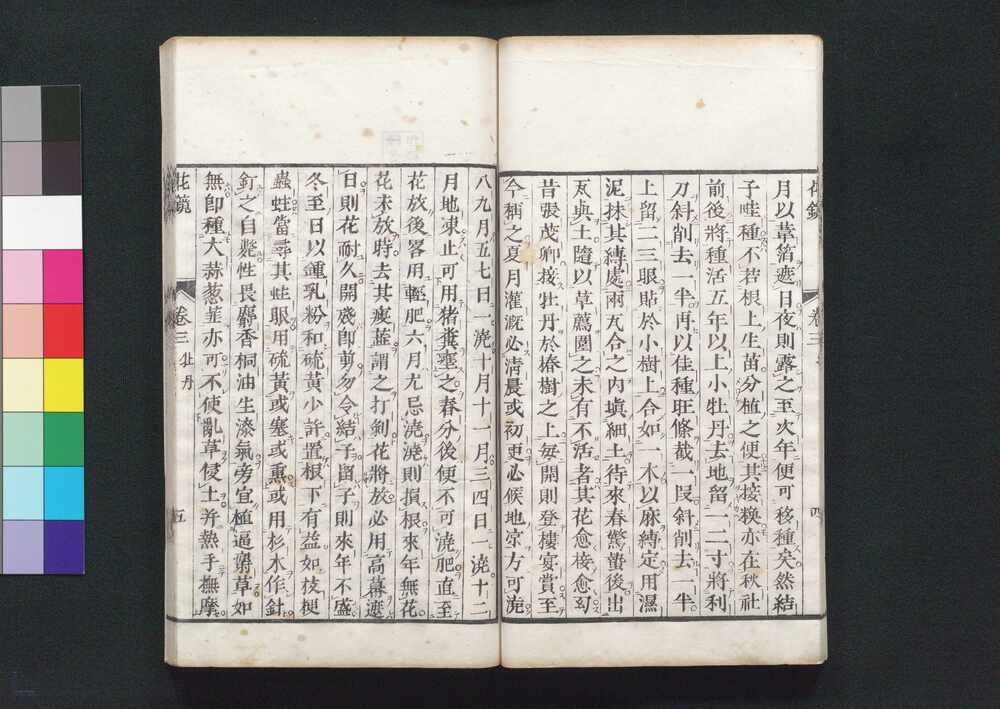 花鏡 卷三 四
月以葦箔遮日夜則露之至次年便可移種矣然結
子畦種不若根上生苗分植之便其接換亦在秋社
前後將種活五年以上小牡丹去地留一二寸將利
刀斜削去一半再以佳種旺條截一段斜削去一半
上留二三眼貼於小樹上合如一木以麻縛定用濕
泥抹其縛處兩瓦合之內塡細土待來春驚蟄後出
瓦與土隨以草薦圍之未有不活者其花愈接愈幻
昔張茂卿接牡丹於椿樹之上每開則登樓宴賞至
今稱之夏月灌溉必淸晨或初更必候地凉方可澆
八九月五七日一澆十月十一月三四日一澆十二
月地凍止可用猪糞壅之春分後便不可澆肥直至
花放後畧用輕肥六月尤忌澆澆則損根來年無花
花未放時去其瘦蕋謂之打剝花將放必用高幕遮
日則花耐久開殘卽剪勿令結子留子則來年不盛
冬至日以鍾乳粉和硫黃少許置根下有益如枝梗
蟲蛀當尋其蛀眼用硫黃或塞或熏或用杉木作針
釘之自斃性畏麝香桐油生漆氣旁宜植逼麝草如
無卽種大蒜葱韮亦可不使亂草侵土并熱手撫摩
花鏡 卷三 牡丹 五